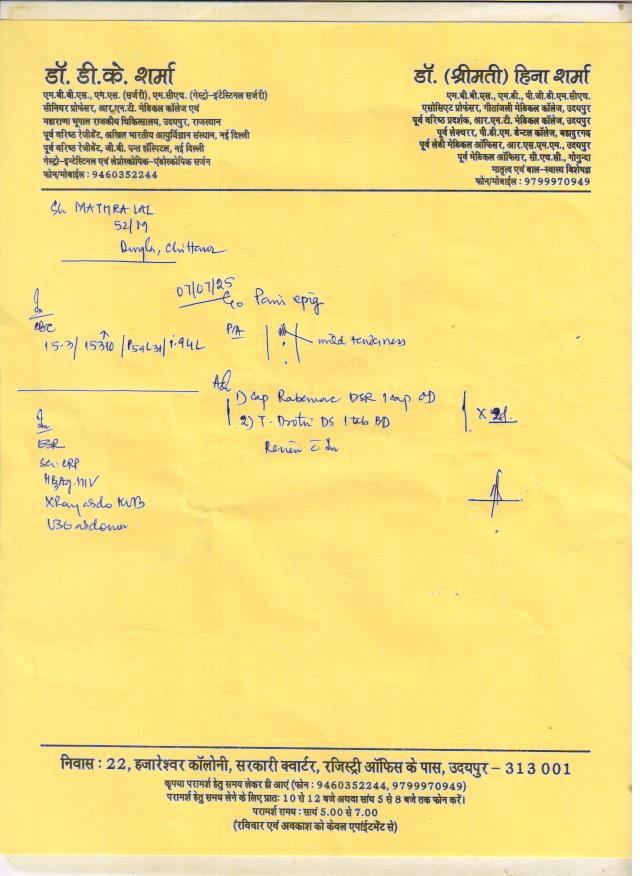 डॉ. डी.के. शर्मा
एम.बी.बी.एस., एम.एस. (सर्जरी), एम.सीएच. (गेस्ट्रो-इंटेस्टिनल सर्जरी)
सीनियर प्रोफेसर, आर.एन.टी. मेडिकल कॉलेज एवं
महाराणा भूपाल राजकीय चिकित्सालय, उदयपुर, राजस्थान
पूर्व वरिष्ठ रेजीडेंट, अखिल भारतीय आयुर्विज्ञान संस्थान, नई दिल्ली
पूर्व वरिष्ठ रेजीडेंट, जी.बी. पन्त हॉस्पिटल, नई दिल्ली
गेस्ट्रो-इन्टेस्टिनल एवं लेप्रोस्कोपिक-एंडोस्कोपिक सर्जन
फोन/मोबाईल : 9460352244
डॉ. (श्रीमती) हिना शर्मा
एम.बी.बी.एस., एम.डी., पी.जी.डी.एम.सीएच.
एसोसिएट प्रोफेसर, गीतांजली मेडिकल कॉलेज, उदयपुर
पूर्व वरिष्ठ प्रदर्शक, आर.एन.टी. मेडिकल कॉलेज, उदयपुर
पूर्व लेक्चरर, पी.डी.एम. डेन्टल कॉलेज, बहादुरगढ़
पूर्व लेडी मेडिकल ऑफिसर, आर.एस.एम.एम., उदयपुर
पूर्व मेडिकल ऑफिसर, सी.एच.सी., गोगुन्दा
मातृत्व एवं बाल-स्वास्थ्य विशेषज्ञ
फोन/मोबाईल : 9799970949
Sh MATHRA LAL
52/M
Dungla, Chittaur
07/07/25
C/o Pain epig
CBC
15.3/ 15310 /
P/A
mild tenderness
Adv
1) Cap Rabemac DSR 1 cap OD
2) T. DS 1 tab BD
Review
ESR
Ser. CRP
HBsAg. HIV
X Ray abdo KUB
USG abdomen
निवास : 22, हजारेश्वर कॉलोनी, सरकारी क्वार्टर, रजिस्ट्री ऑफिस के पास, उदयपुर – 313 001
कृपया परामर्श हेतु समय लेकर ही आएं (फोन : 9460352244, 9799970949)
परामर्श हेतु समय लेने के लिए प्रातः 10 से 12 बजे अथवा सांय 5 से 8 बजे तक फोन करें।
परामर्श समय : सायं 5.00 से 7.00
(रविवार एवं अवकाश को केवल एपांईटमेंट से)